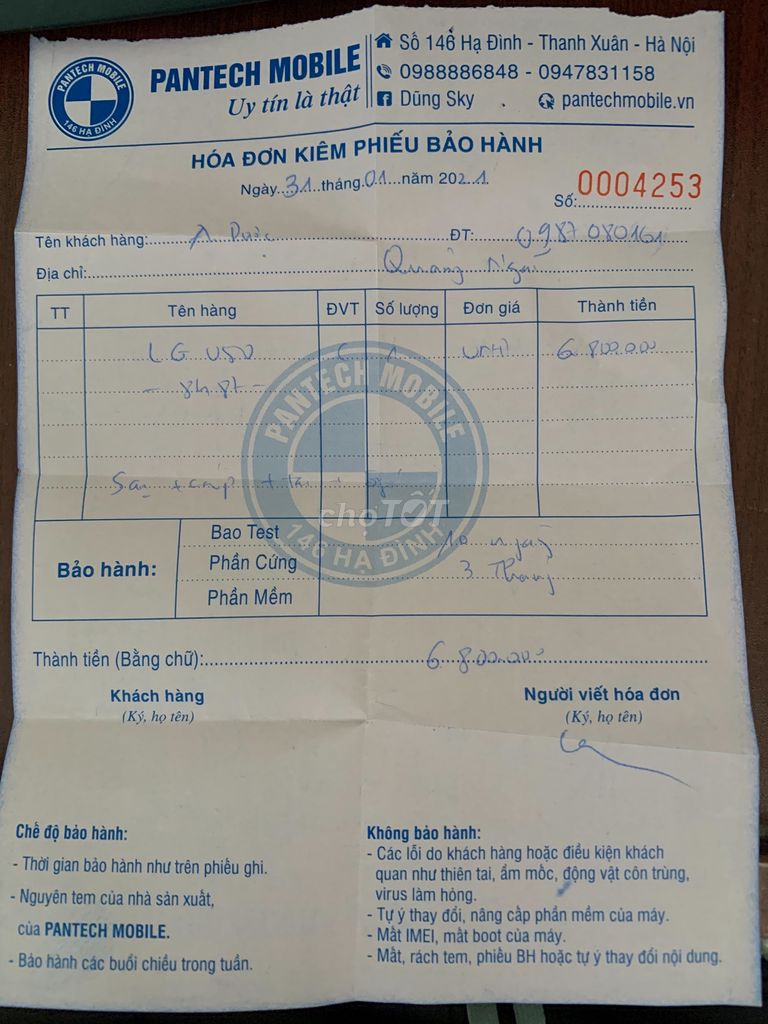 PANTECH MOBILE
146 HẠ ĐÌNH
PANTECH MOBILE
Uy tín là thật
Số 146 Hạ Đình - Thanh Xuân - Hà Nội
0988886848 - 0947831158
Dũng Sky
pantechmobile.vn
HÓA ĐƠN KIÊM PHIẾU BẢO HÀNH
Ngày 31 tháng 01 năm 2021
Số: 0004253
Tên khách hàng: A ĐT:
Địa chỉ: Quảng Ngãi
TT Tên hàng ĐVT Số lượng Đơn giá Thành tiền
LG C 1 6 800.000
PANTECH MOBILE
146 HẠ ĐÌNH
Sạc + cáp + tai +
chợTỐT
Bảo hành:
Bao Test 10 ngày
Phần Cứng 3 Tháng
Phần Mềm
Thành tiền (Bằng chữ): 6 800.000
Khách hàng Người viết hóa đơn
(Ký, họ tên) (Ký, họ tên)
Chế độ bảo hành:
- Thời gian bảo hành như trên phiếu ghi.
- Nguyên tem của nhà sản xuất,
của PANTECH MOBILE.
- Bảo hành các buổi chiều trong tuần.
Không bảo hành:
- Các lỗi do khách hàng hoặc điều kiện khách
quan như thiên tai, ẩm mốc, động vật côn trùng,
virus làm hỏng.
- Tự ý thay đổi, nâng cấp phần mềm của máy.
- Mất IMEI, mất boot của máy.
- Mất, rách tem, phiếu BH hoặc tự ý thay đổi nội dung.